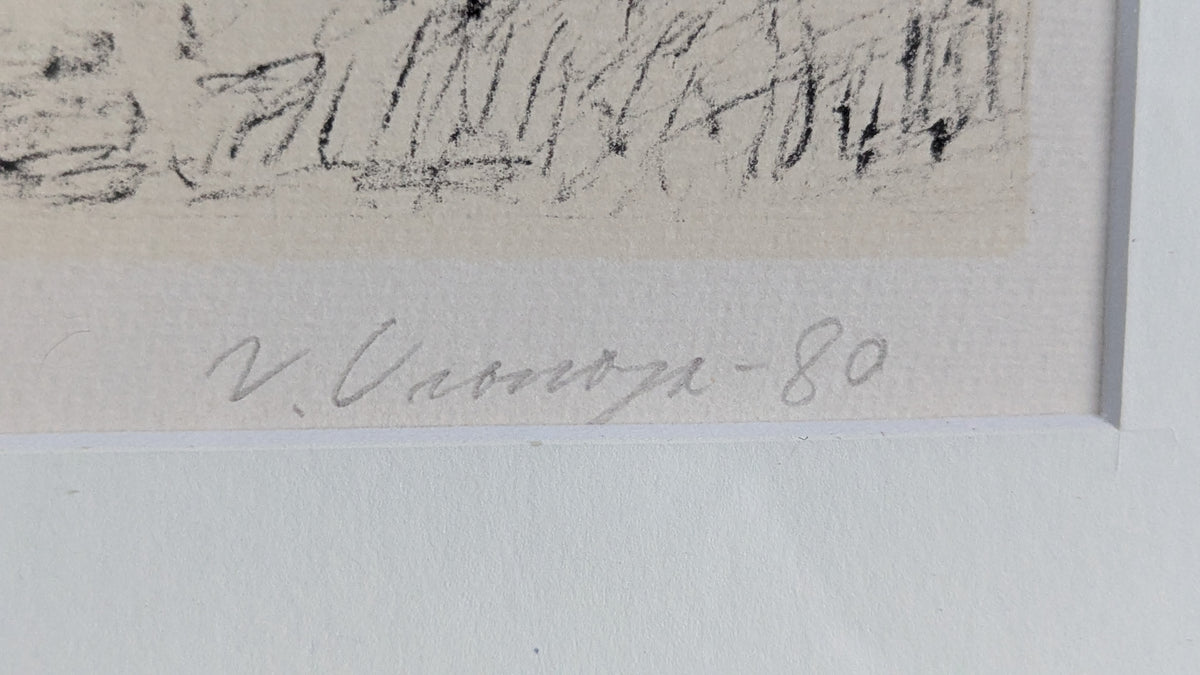 V. Vionoja -80